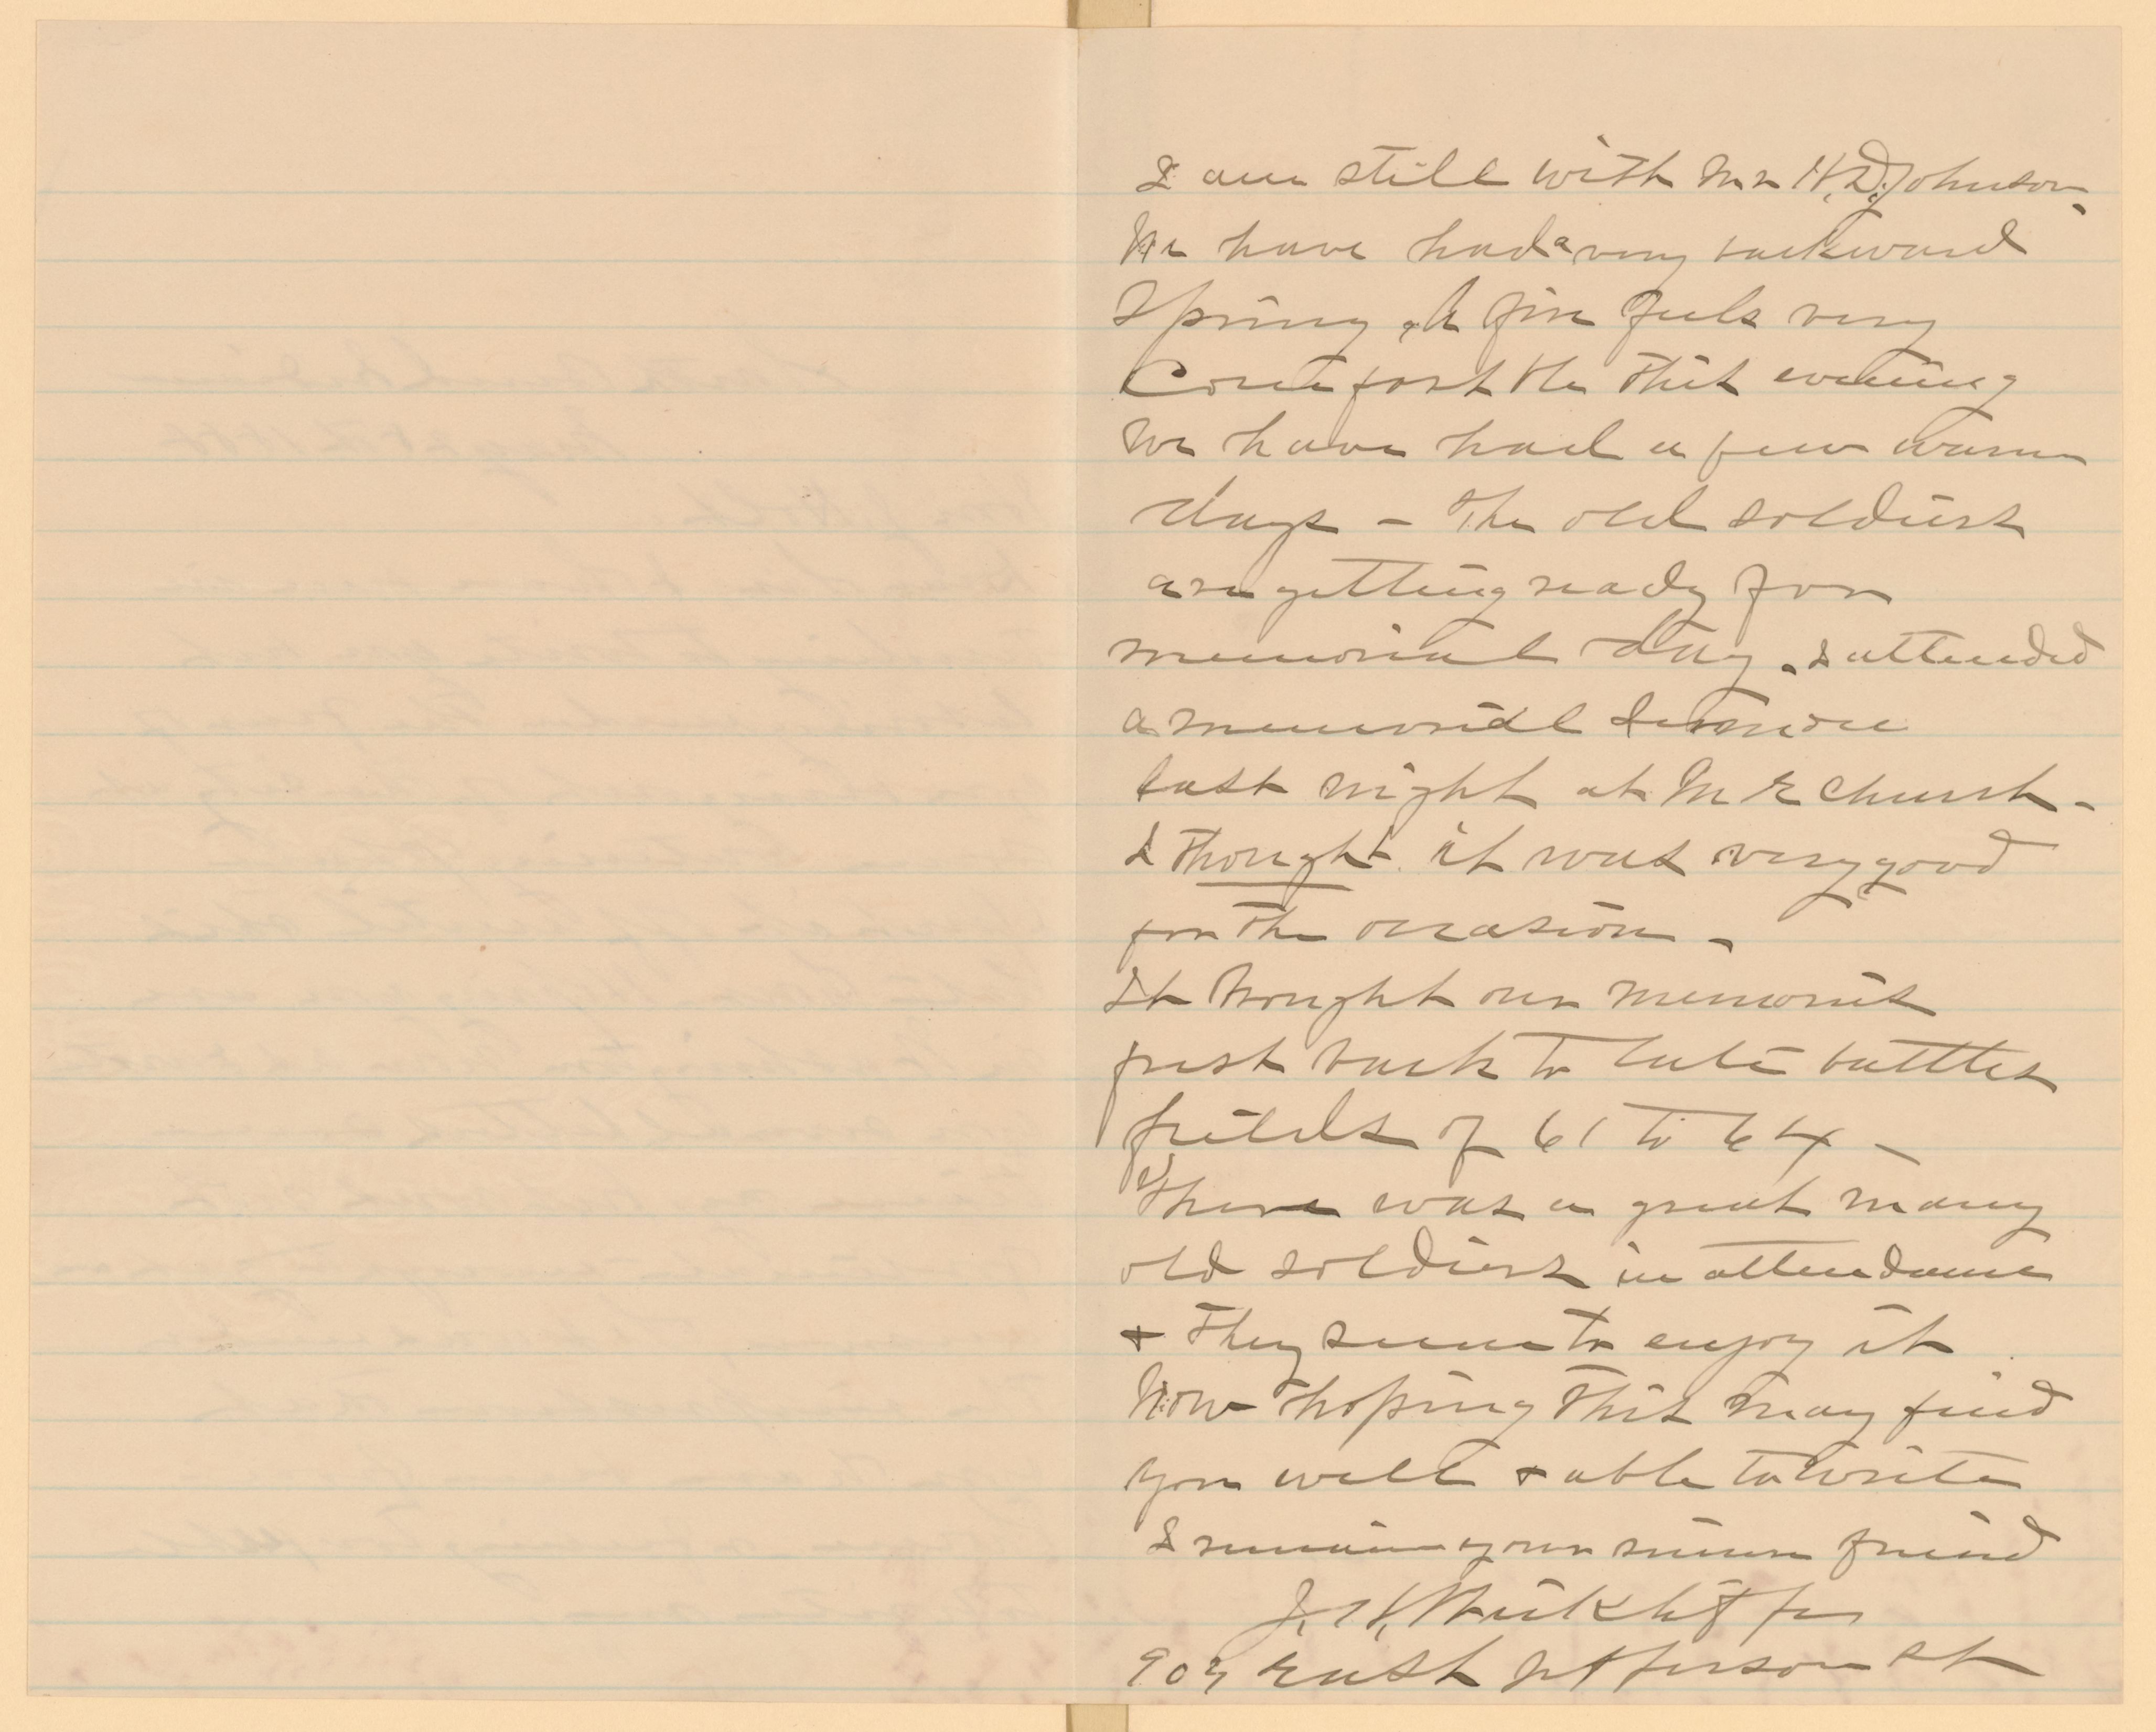 I am still with Mr H.D. Johnson.
We have had a very backward
Spring, A fire feels very
Comfort ble this evening
We have had a few warm
days - The old soldiers
are getting ready for
memorial day. I attended
a memorial Sermon
last night at M E Church -
I thought it was very good
for the occasion -
It brought our memories
past back to battles
fields of 61 to 64 -
There was a great many
old soldiers in attendance
& They seem to enjoy it
Now hoping this may find
you well & able to write
I remain your sincere friend
J. H. Wickliffe
909 East Jefferson St